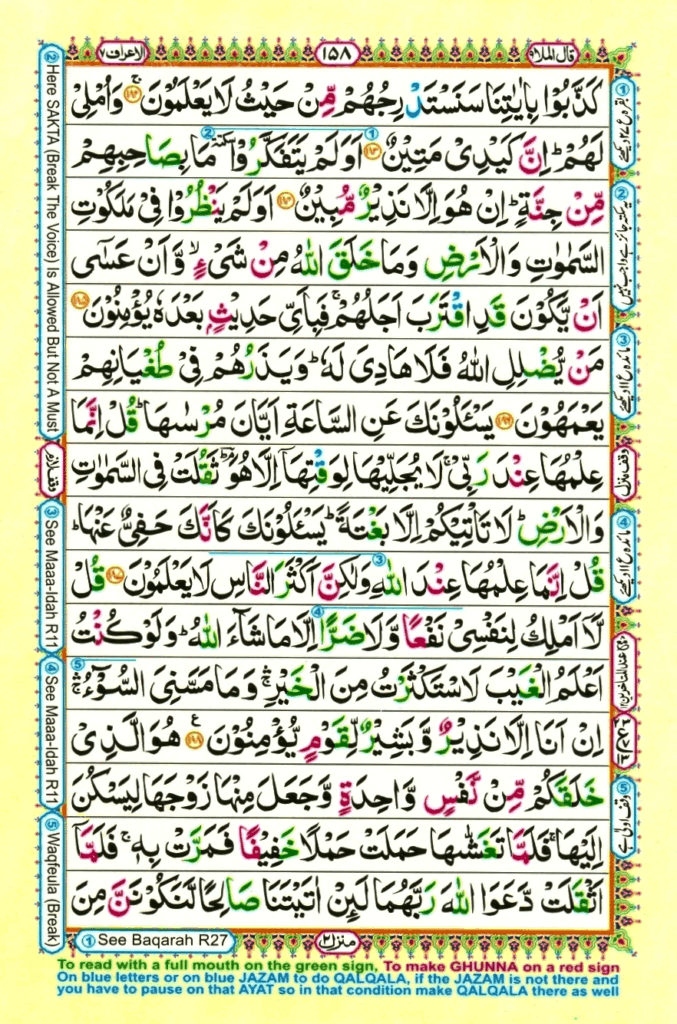 الاعراف ٧
١٥٨
قال الملا ٩
كَذَّبُوْا بِاٰيٰتِنَا سَنَسْتَدْرِجُهُمْ مِّنْ حَيْثُ لَا يَعْلَمُوْنَ ۚ وَاُمْلِىْ
لَهُمْ ؕ اِنَّ كَيْدِىْ مَتِيْنٌ ① اَوَلَمْ يَتَفَكَّرُوْا ٚ سكتة ② مَا بِصَاحِبِهِمْ
مِّنْ جِنَّةٍ ؕ اِنْ هُوَ اِلَّا نَذِيْرٌ مُّبِيْنٌ اَوَلَمْ يَنْظُرُوْا فِىْ مَلَكُوْتِ
السَّمٰوٰتِ وَالْاَرْضِ وَمَا خَلَقَ اللّٰهُ مِنْ شَىْءٍ ۙ وَّاَنْ عَسٰٓى
اَنْ يَّكُوْنَ قَدِ اقْتَرَبَ اَجَلُهُمْ ۚ فَبِاَىِّ حَدِيْثٍۭ بَعْدَهٗ يُؤْمِنُوْنَ ١٨٥
مَنْ يُّضْلِلِ اللّٰهُ فَلَا هَادِىَ لَهٗ ؕ وَيَذَرُهُمْ فِىْ طُغْيَانِهِمْ
يَعْمَهُوْنَ يَسْـَٔلُوْنَكَ عَنِ السَّاعَةِ اَيَّانَ مُرْسٰىهَا ؕ قُلْ اِنَّمَا
عِلْمُهَا عِنْدَ رَبِّىْ ۚ لَا يُجَلِّيْهَا لِوَقْتِهَاۤ اِلَّا هُوَ ؔۘ ثَقُلَتْ فِى السَّمٰوٰتِ
وَالْاَرْضِ ؕ لَا تَاْتِيْكُمْ اِلَّا بَغْتَةً ؕ يَسْـَٔلُوْنَكَ كَاَنَّكَ حَفِىٌّ عَنْهَا ؕ
قُلْ اِنَّمَا عِلْمُهَا عِنْدَ اللّٰهِ ③ وَلٰكِنَّ اَكْثَرَ النَّاسِ لَا يَعْلَمُوْنَ ١٨٧ قُلْ
لَّاۤ اَمْلِكُ لِنَفْسِىْ نَفْعًا وَّلَا ضَرًّا ④ اِلَّا مَا شَآءَ اللّٰهُ ؕ وَلَوْ كُنْتُ
اَعْلَمُ الْغَيْبَ لَاسْتَكْثَرْتُ مِنَ الْخَيْرِ ۛۚ وَمَا مَسَّنِىَ السُّوْٓءُ ۛۚ ⑤
اِنْ اَنَا اِلَّا نَذِيْرٌ وَّبَشِيْرٌ لِّقَوْمٍ يُّؤْمِنُوْنَ ١٨٨ ع هُوَ الَّذِىْ
خَلَقَكُمْ مِّنْ نَّفْسٍ وَّاحِدَةٍ وَّجَعَلَ مِنْهَا زَوْجَهَا لِيَسْكُنَ
اِلَيْهَا ۚ فَلَمَّا تَغَشّٰىهَا حَمَلَتْ حَمْلًا خَفِيْفًا فَمَرَّتْ بِهٖ ۚ فَلَمَّاۤ
اَثْقَلَتْ دَّعَوَا اللّٰهَ رَبَّهُمَا لَئِنْ اٰتَيْتَنَا صَالِحًا لَّنَكُوْنَنَّ مِنَ
② Here SAKTA (Break The Voice) Is Allowed But Not A Must
وقف لازم
③ See Maaa-Idah R11
④ See Maaa-Idah R11
⑤ Waqfeula (Break)
② یہ سکتہ جائز ہے واجب نہیں
وقف منزل
⑤ وقف اولیٰ ہے
① See Baqarah R27
منزل ٢
To read with a full mouth on the green sign, To make GHUNNA on a red sign
On blue letters or on blue JAZAM to do QALQALA, if the JAZAM is not there and
you have to pause on that AYAT so in that condition make QALQALA there as well